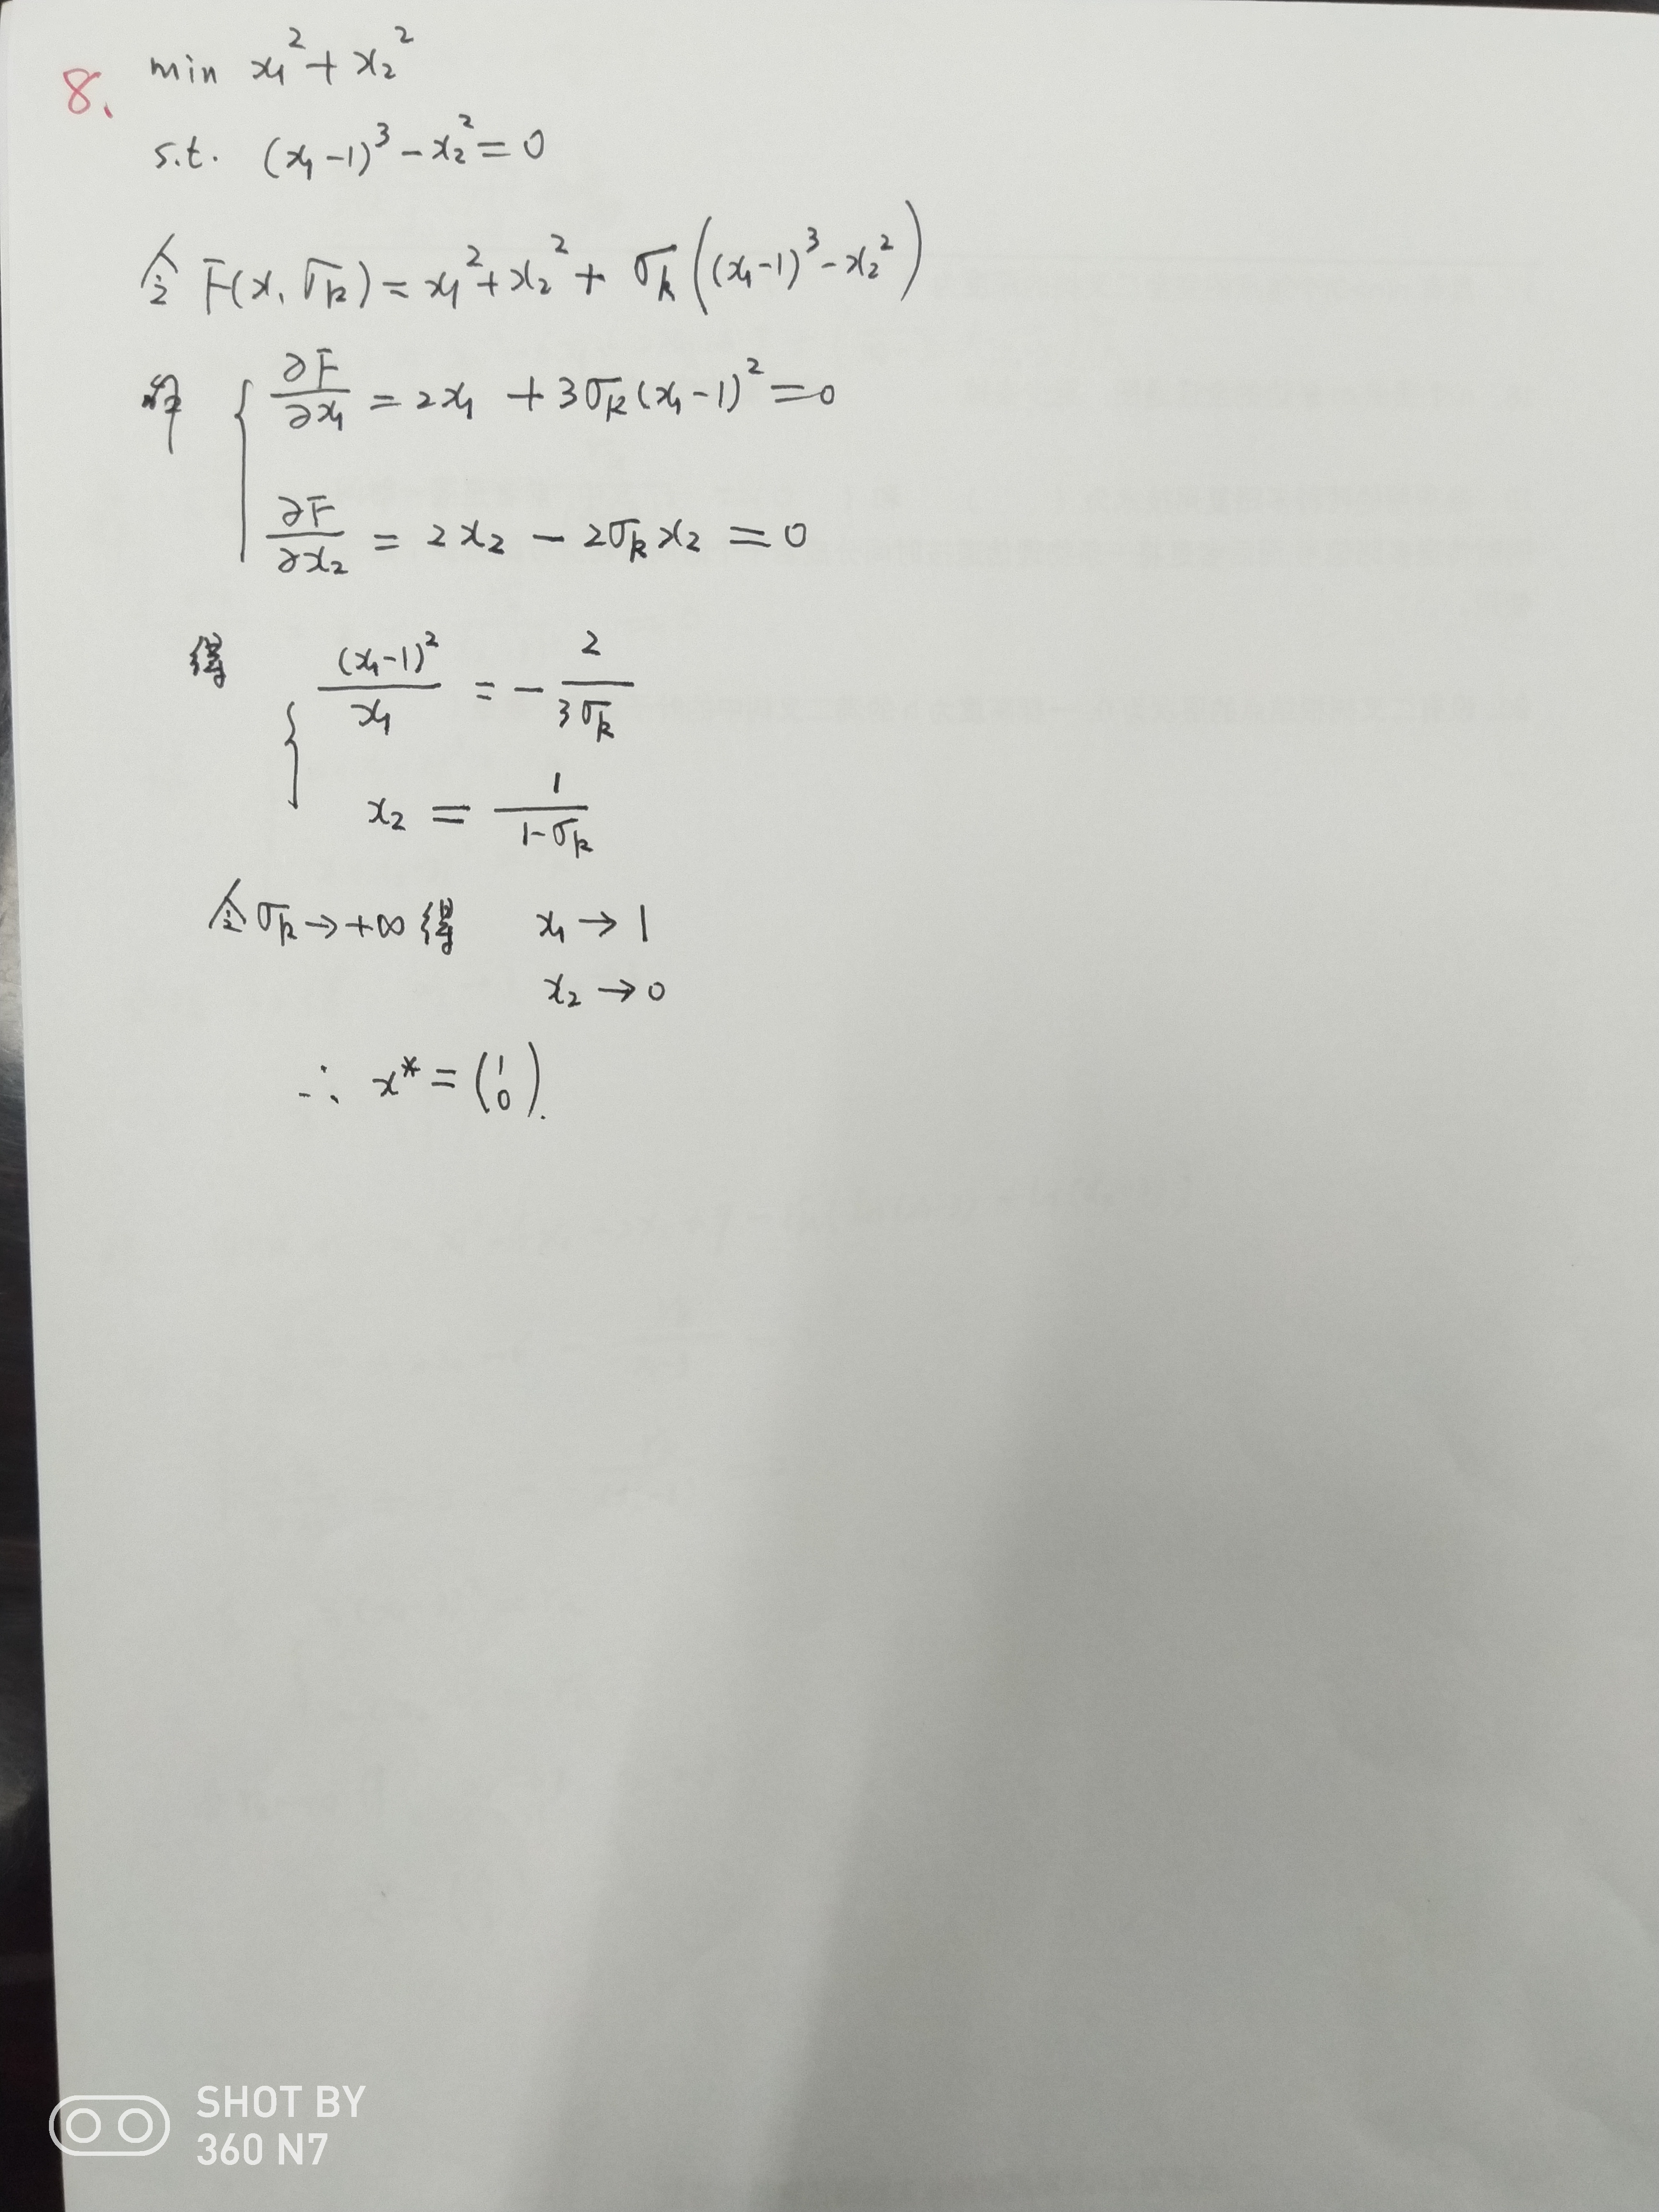 8. min x₁² + x₂²
s.t. (x₁-1)³ - x₂² = 0
令 F(x, σk) = x₁² + x₂² + σk((x₁-1)³ - x₂²)
解 { ∂F/∂x₁ = 2x₁ + 3σk(x₁-1)² = 0
∂F/∂x₂ = 2x₂ - 2σk x₂ = 0
得 { (x₁-1)²/x₁ = - 2/3σk
x₂ = 1/1-σk
令 σk → +∞ 得 x₁ → 1
x₂ → 0
∴ x* = (1 0).
SHOT BY
360 N7